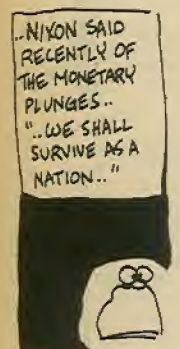 ..NIXON SAID
RECENTLY OF
THE MONETARY
PLUNGES..
"..WE SHALL
SURVIVE AS A
NATION.."